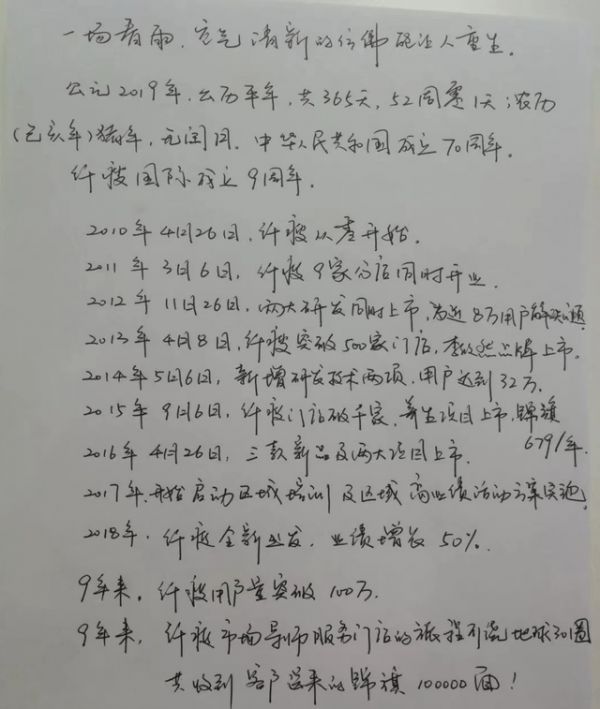 一场春雨，空气清新的仿佛能让人重生。
公记2019年，公历平年，共365天，52周零1天；农历
（己亥年）猪年，无闰月。中华人民共和国成立70周年。
纤瘦国际成立9周年。
2010年4月26日，纤瘦从李开始。
2011年3月6日，纤瘦9家分店同时开业。
2012年11月26日，两大研发同时上市，为近8万用户解决问题
2013年4月8日，纤瘦突破500家门店，李放然品牌上市。
2014年5月6日，新增研发技术两项，用户达到32万。
2015年9月6日，纤瘦门店破千家，养生项目上市，锦旗
679/年.
2016年4月26日，三款新品及两大项目上市.
2017年.开始启动区域培训及区域高业绩活动方案实施，
2018年.纤瘦全新出发，业绩增长50%.
9年来，纤瘦用户量突破100万.
9年来，纤瘦市场导师服务门店的旅程可绕地球30圈
共收到客户送来的锦旗100000面！